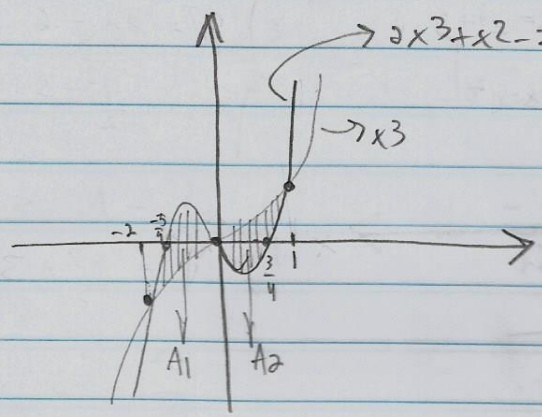 2x3+x2-
x3
-2
3/4
1
A1 A2